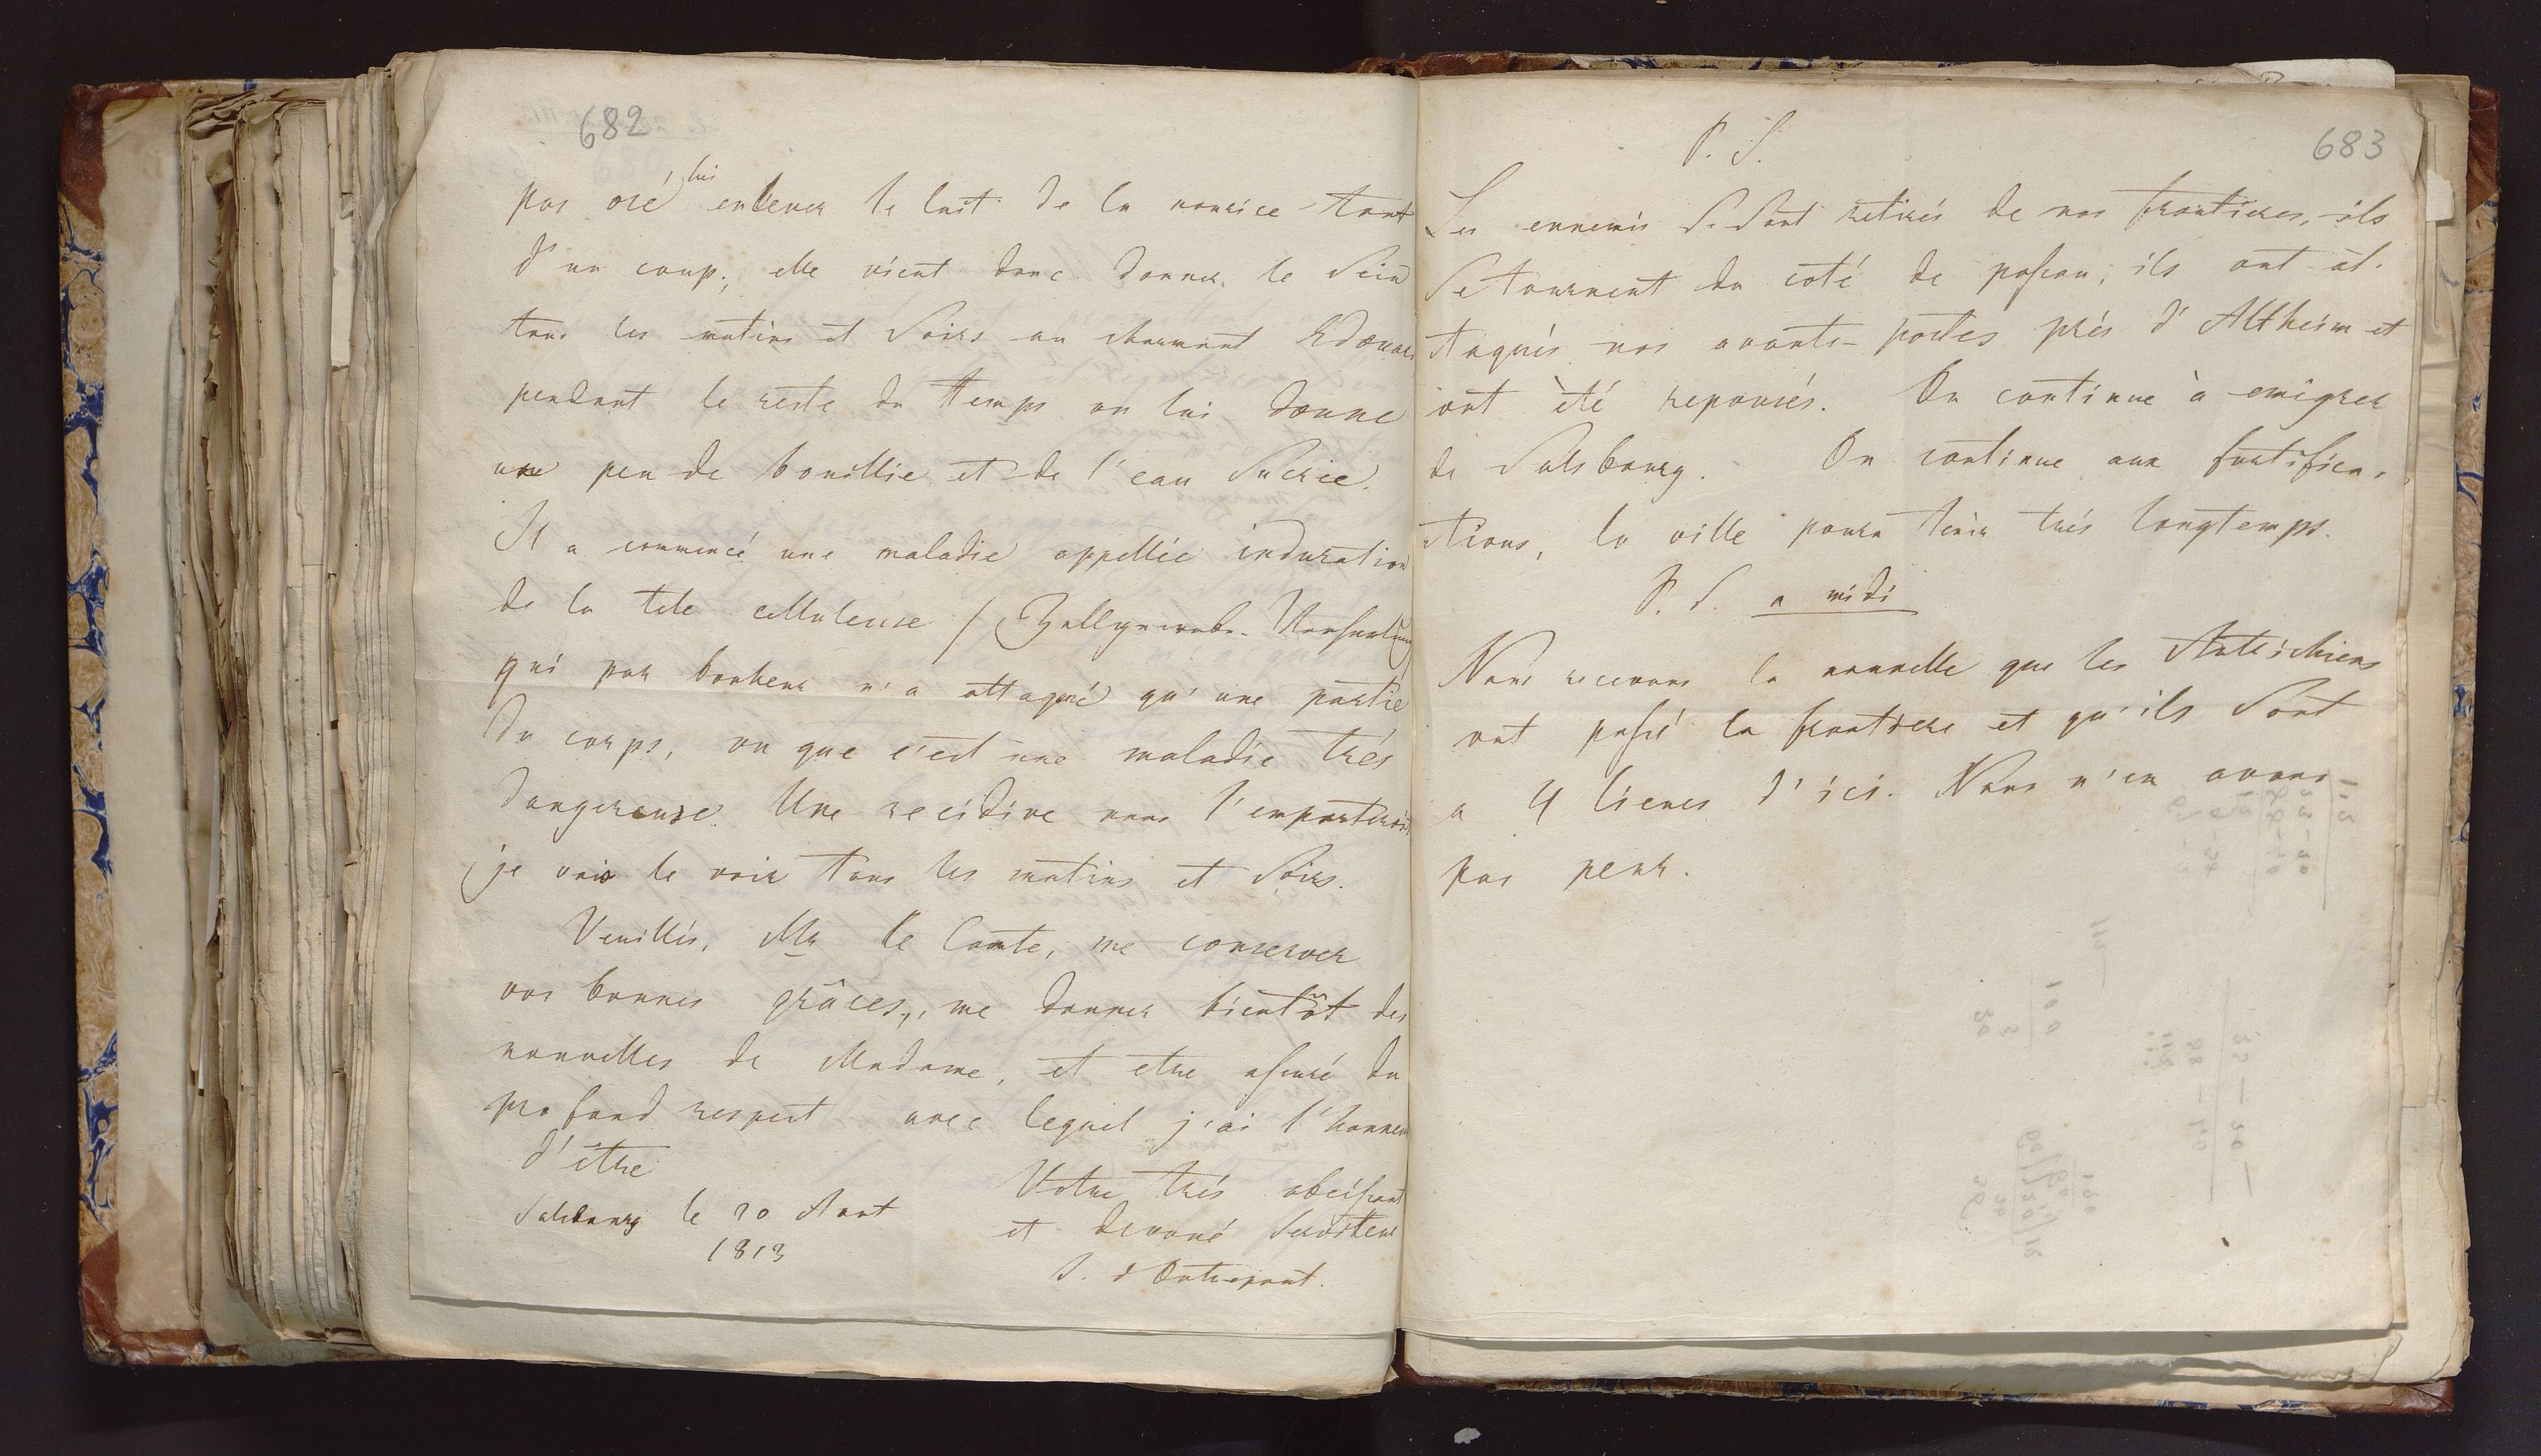 682
pas osé lui enlever le lait de la nourice tout
d'un coup; elle vient donc donner le Sein
tous les matins et Soirs au charmant Edouard
pendant le reste du temps on lui donne
une peu de bouillie et de l'eau Sucrée.
Il a commencé une maladie appellée induration
de la tele celluleuse / Zellgewebs-Verhärtung
qui par bonheur n'a attaqué qu'une partie
du corps, vu que c'est une maladie trés
dangereuse. Une recidive nous l'emporteroit
je vais le voir tous les matins et Soirs.
Veuillés, Mr le Comte, me conserver
vos bonnes grâces, me donner bientôt des
nouvelles de Madame, et etre assuré du
profond respect avec lequel j'ai l'honneur
d'être
Votre trés obeissant
et devoué Serviteur
Salzbourg le 20 Aout
1813
683
P. S.
Les ennemis Se Sont retirés de nos frontieres, ils
Se tournent du coté de passau, ils ont at-
taqués nos avants-postes prés d'Altheim et
ont été repousés. On continue à emigrer
de Salsbourg. On continue aux fortifica-
tions, la ville poura tenir trés longtemps.
P. S. a midi
Nous recevons la nouvelle que les Autrichiens
ont passé la frontiere et qu'ils Sont
a 4 lieues d'ici. Nous n'en avons
pas peur.